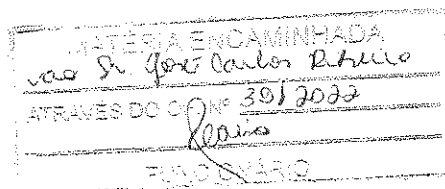 MATÉRIA ENCAMINHADA
ao Sr. José Carlos Ribeiro
ATRAVÉS DO Nº 391/2022
FUNCIONÁRIO